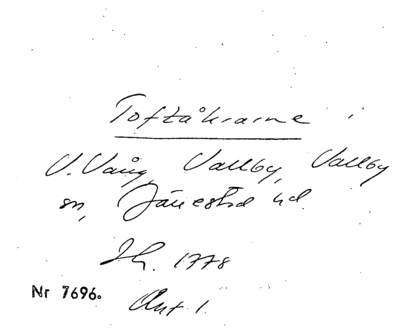 Toftåkrarne i
V. Vång, Vallby, Vallby
sn, Järrestad hd.
Sk. 1778
Nr 7696.
Akt 1.